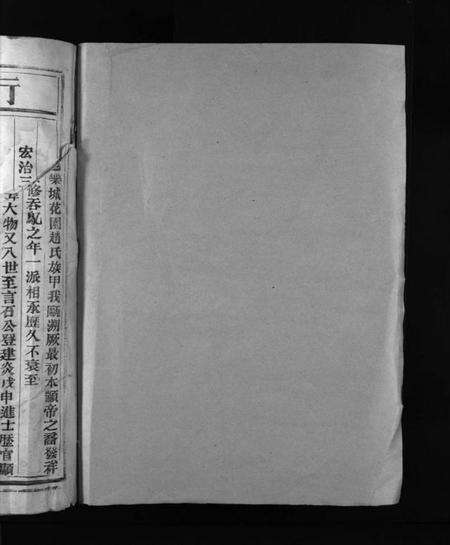 樂城花園趙氏族甲我甌溯厥最初本顓帝之裔發祥
宏治三
修吞乩之年一派相承歷久不衰至
大物又八世至言石公登建炎戊申進士歷官顯